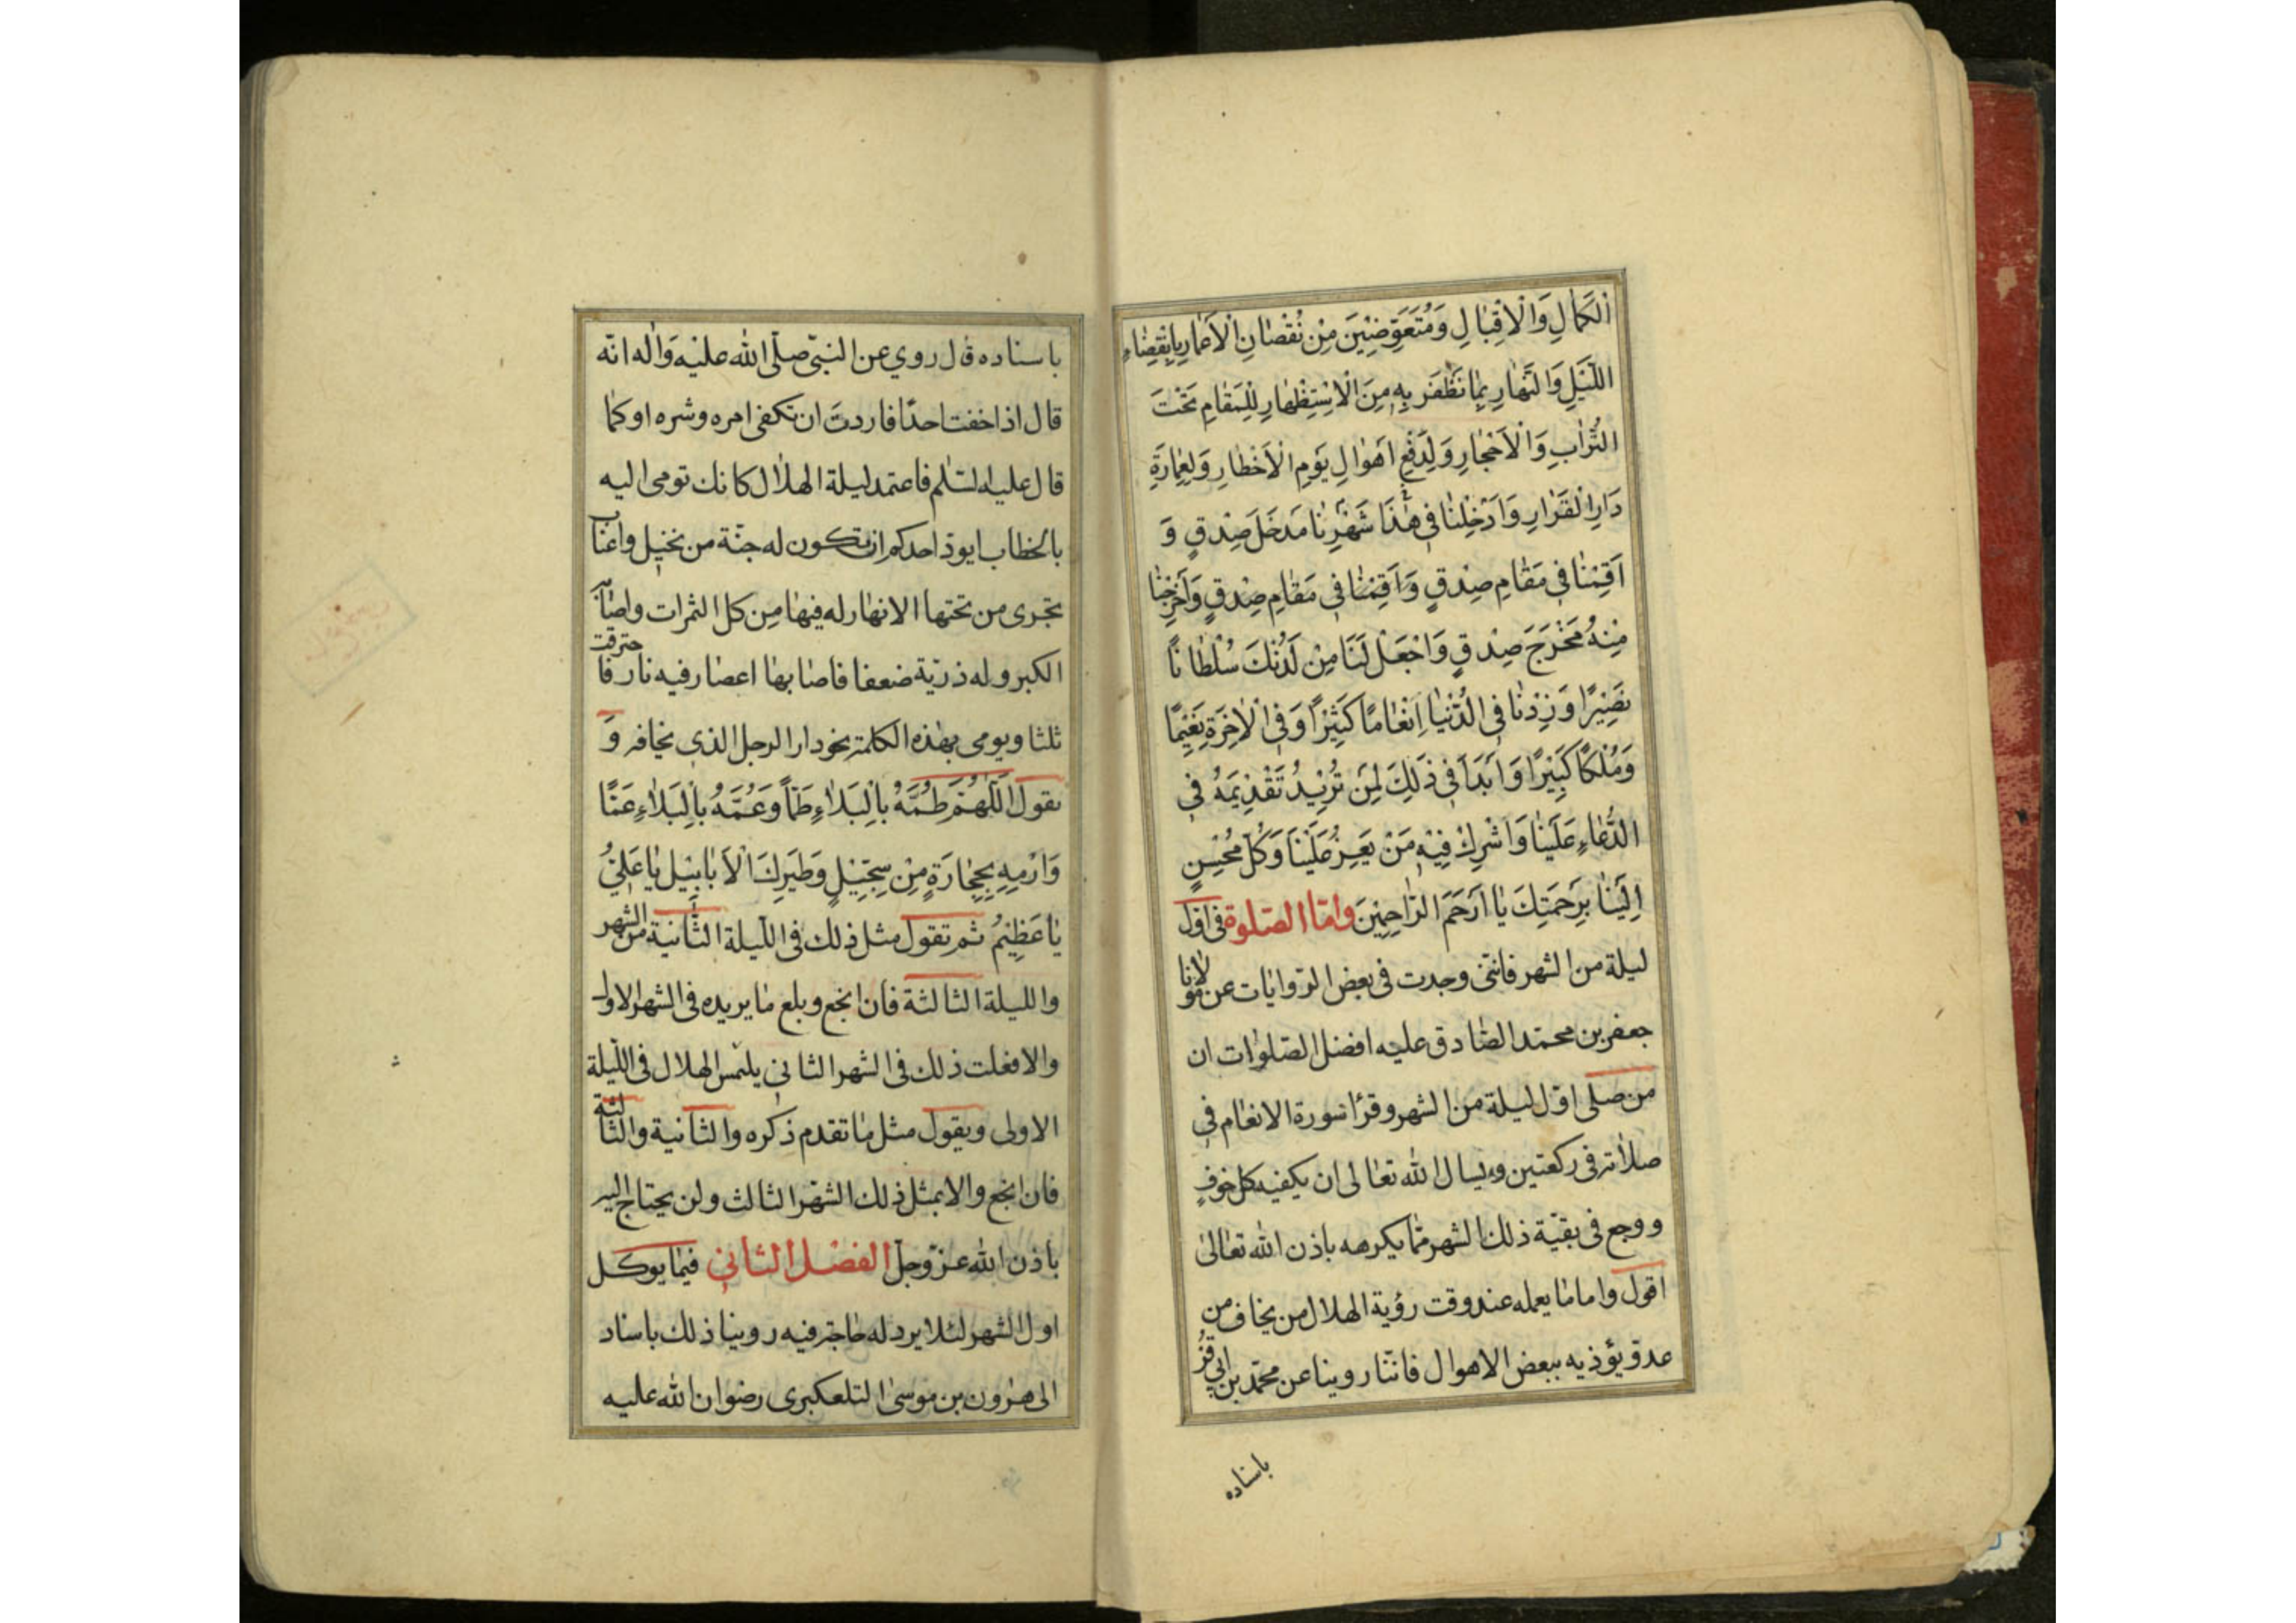 الكَمالِ وَالْاِقْبالِ وَمُتَعَوِّضينَ مِنْ نُقْصانِ الْاَعْمارِ بِانْقِضاءِ
اللَّيْلِ وَالنَّهارِ بِمانَظْفَر بِهِ مِنَ الْاِسْتِظْهارِ لِلْمَقامِ تَحْتَ
التُّرابِ وَالْاَحْجارِ وَلِدَفْعِ اَهْوالِ يَوْمِ الْاَخْطارِ وَلِعِمارَةِ
دَارِ الْقَرارِ وَاَدْخِلْنا فى هٰذَا شَهْرِنا مَدخَلَ صِدقٍ وَ
اَقِمْنا فى مَقامِ صِدقٍ وَاَقِمْنا فى مَقامِ صِدقٍ وَاَخْرِجْنا
مِنْهُ مَخْرَجَ صِدقٍ وَاجْعَلْ لَنَا مِنْ لَدُنْكَ سُلْطاناً
نَصيرًا وَزِدْنا فى الدُّنْيا اِنْعامًا كَثيرًا وَفى الْاٰخِرَةِ نَعيمًا
وَمُلْكًا كَبيرًا وَابَدَأ فى ذَلِكَ لِمَن تُريدُ تَقْديمَهُ فى
الدُّعاءِ عَلَيْنا وَاشْرِكْ فيهِ مَنْ يَعِزُّ عَلَيْنا وَكُلَّ مُحْسِنٍ
اِلَيْنا بِرَحْمَتِكَ يا اَرْحَمَ الرّاحِمينَ وامّا الصّلوة فى اوّل
ليلة من الشهر فانّنى وجدت فى بعض الرّوايات عن مولانا
جعفر بن محمّد الصّادق عليه افضل الصّلوات ان
من صلى اوّل ليلة من الشهر وقرأ سورة الانعام فى
صلاته فى ركعتين ويسال الله تعالى ان يكفيه كل خوفٍ
ووجع فى بقيّة ذلك الشهر ممّا يكرهه باذن الله تعالىٰ
اقول واما ما يعمله عند وقت رؤية الهلال من يخاف من
عدوّ يؤذيه ببعض الاهوال فانّنا روينا عن محمّد بن ابى قرّ
باسناده
باسناده قال روي عن النبىّ صلّى الله عليه وَاٰله انّه
قال اذا خفت احدًا فاردتَ ان تكفى امره وشره او كما
قال عليه السّلم فاعتمد ليلة الهلال كانك تومى اليه
بالخطاب ايودّ احدكم ان تكون له جنّة من نخيل واعناب
تجرى من تحتها الانهار له فيها من كل الثمرات واصابه
الكبر وله ذريّة ضعفا فاصابها اعصار فيه نار فاحترقت
ثلثا ويومى بهذه الكلمة نحو دار الرجل الذى يخافه وَ
يقول اَللّهُمَّ طُمَّهُ بِالْبَلاءِ طَمّاً وَعُمَّهُ بِالْبَلاءِ عَمًّا
وَارْمِهِ بِحِجارَةٍ مِنْ سِجّيلٍ وَطَيرِكَ الْاَبابيل يا عَلِيُّ
يا عَظيمُ ثم تقول مثل ذلك فى اللّيلة الثّانية من الشهر
والليلة الثالثة فان انجع وبلع ما يريده فى الشهر الاول
والا فعلت ذلك فى الشهر الثانى يلتمس الهلال فى اللّيلة
الاولى ويقول مثل ما تقدم ذكره والثانية والثالثة
فان انجع والا بمثل ذلك الشهر الثالث ولن يحتاج اليه
باذن الله عزّ وجلّ الفصل الثانى فيما يوكل
اول الشهر لئلا يرد له حاجة فيه روينا ذلك باسناد
الى هرون بن موسىٰ التلعكبرى رضوان الله عليه